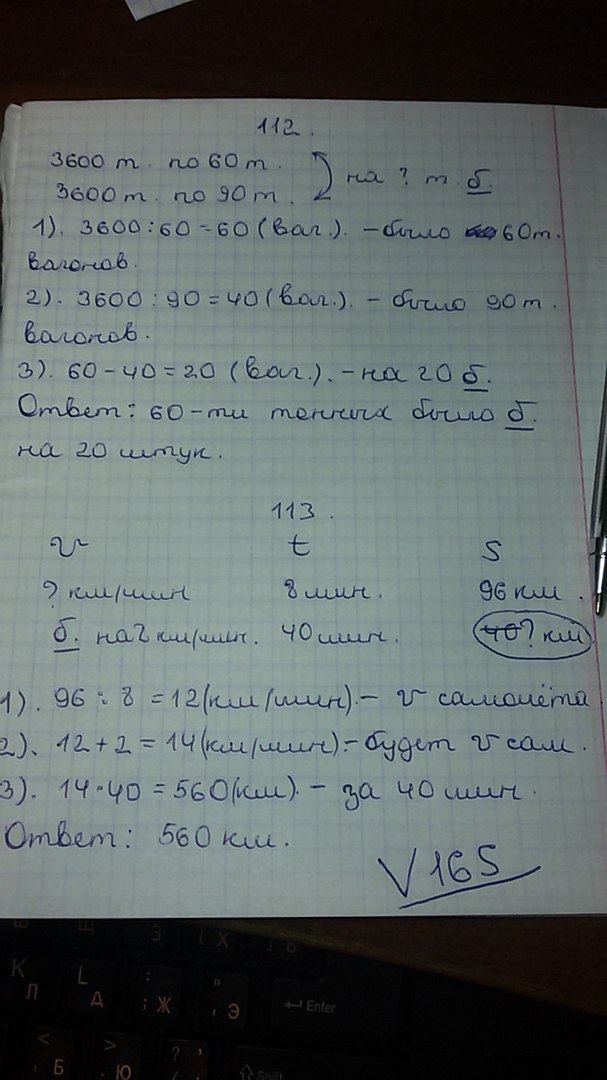 112.
3600 т. по 60 т.
3600 т. по 90 т.
на ? т. б.
1). 3600 : 60 = 60 (ваг.). - было 60 т.
вагонов.
2). 3600 : 90 = 40 (ваг.). - было 90 т.
вагонов.
3). 60 - 40 = 20 (ваг.). - на 20 б.
Ответ: 60-ти тонных было б.
на 20 штук.
113.
v t S
? км/мин 8 мин. 96 км.
б. на 2 км/мин. 40 мин. ? км
1). 96 : 8 = 12 (км/мин). - v самолёта
2). 12 + 2 = 14 (км/мин). - будет v сам.
3). 14 · 40 = 560 (км). - за 40 мин.
Ответ: 560 км.
V 165
З Х Ъ
K Л L Д : ; Ж " ' Э Enter
< , Б > . Ю ? / Shift